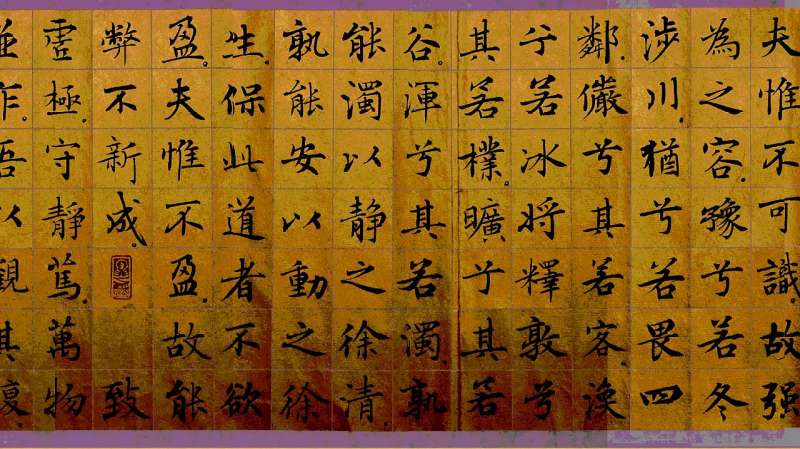 夫惟不可識。故强
為之容。豫兮若冬
涉川。猶兮若畏四
鄰。儼兮其若客。渙
兮若冰將釋敦兮
其若樸。曠兮其若
谷。渾兮其若濁。孰
能濁以靜之徐清。
孰能安以動之徐
生。保此道者不欲
盈。夫惟不盈。故能
弊不新成。致
虛極。守靜篤。萬物
並作。吾以觀其復。